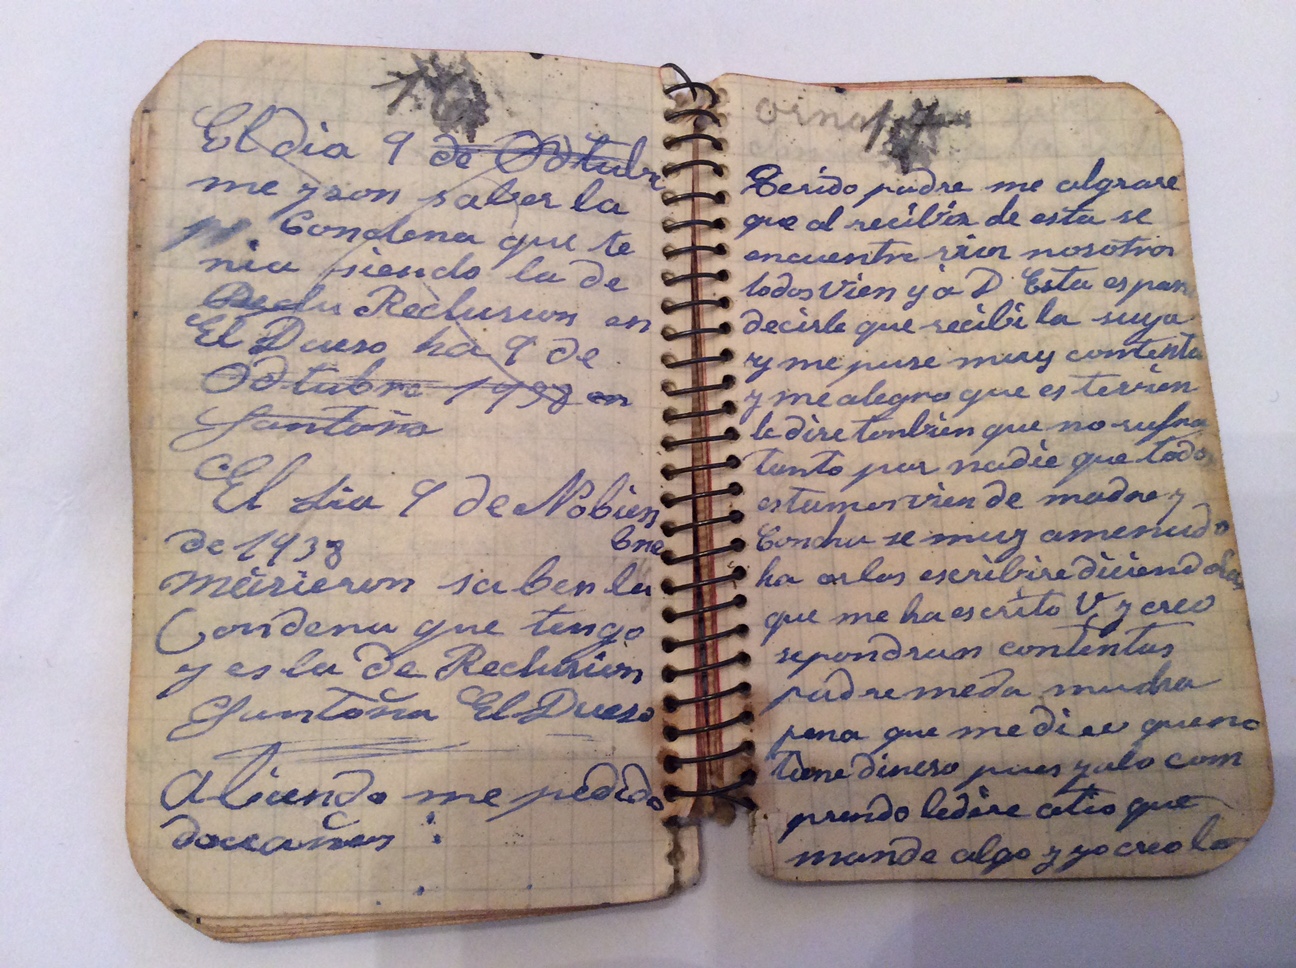 El dia 9 de Octubr
me yson saber la
Condena que te
nia siendo la de
Reclu Reclusion en
El Dueso ha 9 de
Octubre 1938 en
Santoña
El dia 9 de Nobien
de 1938 bre
maicieron saber la
Condena que tengo
y es la de Reclusion
Santoña El Dueso
Abiendo me pedido
doce años
Cerido padre me algrare
que al recibir de esta se
encuentre vien nosotros
todos vien y a D Esta es para
decirle que recibi la suya
y me puse muy contento
y me alegro que este vien
le dire tonbien que no sufra
tanto por nadie que todos
estamos vien de madre y
Concha se muy amenudo
ha carlos escribire diciendole
que me ha escrito V y creo
se pondran contentos
padre me da mucha
pena que me dice que no
tiene dinero pues yalo com
prendo le dire a tio que
mande algo y yo creo lo